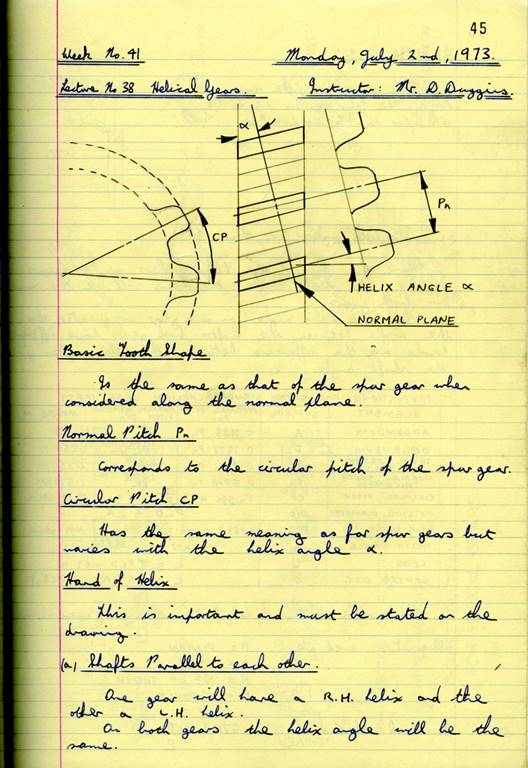 45
Week No. 41 Monday, July 2nd, 1973.
Lecture No 38 Helical Gears. Instructor: Mr. D. Duggins.
α
CP
Pn
HELIX ANGLE α
NORMAL PLANE
Basic Tooth Shape
Is the same as that of the spur gear when
considered along the normal plane.
Normal Pitch Pn
Corresponds to the circular pitch of the spur gear.
Circular Pitch CP
Has the same meaning as for spur gears but
varies with the helix angle α.
Hand of Helix
This is important and must be stated on the
drawing.
(a) Shafts Parallel to each other.
One gear will have a R.H. helix and the
other a L.H. helix.
On both gears the helix angle will be the
same.